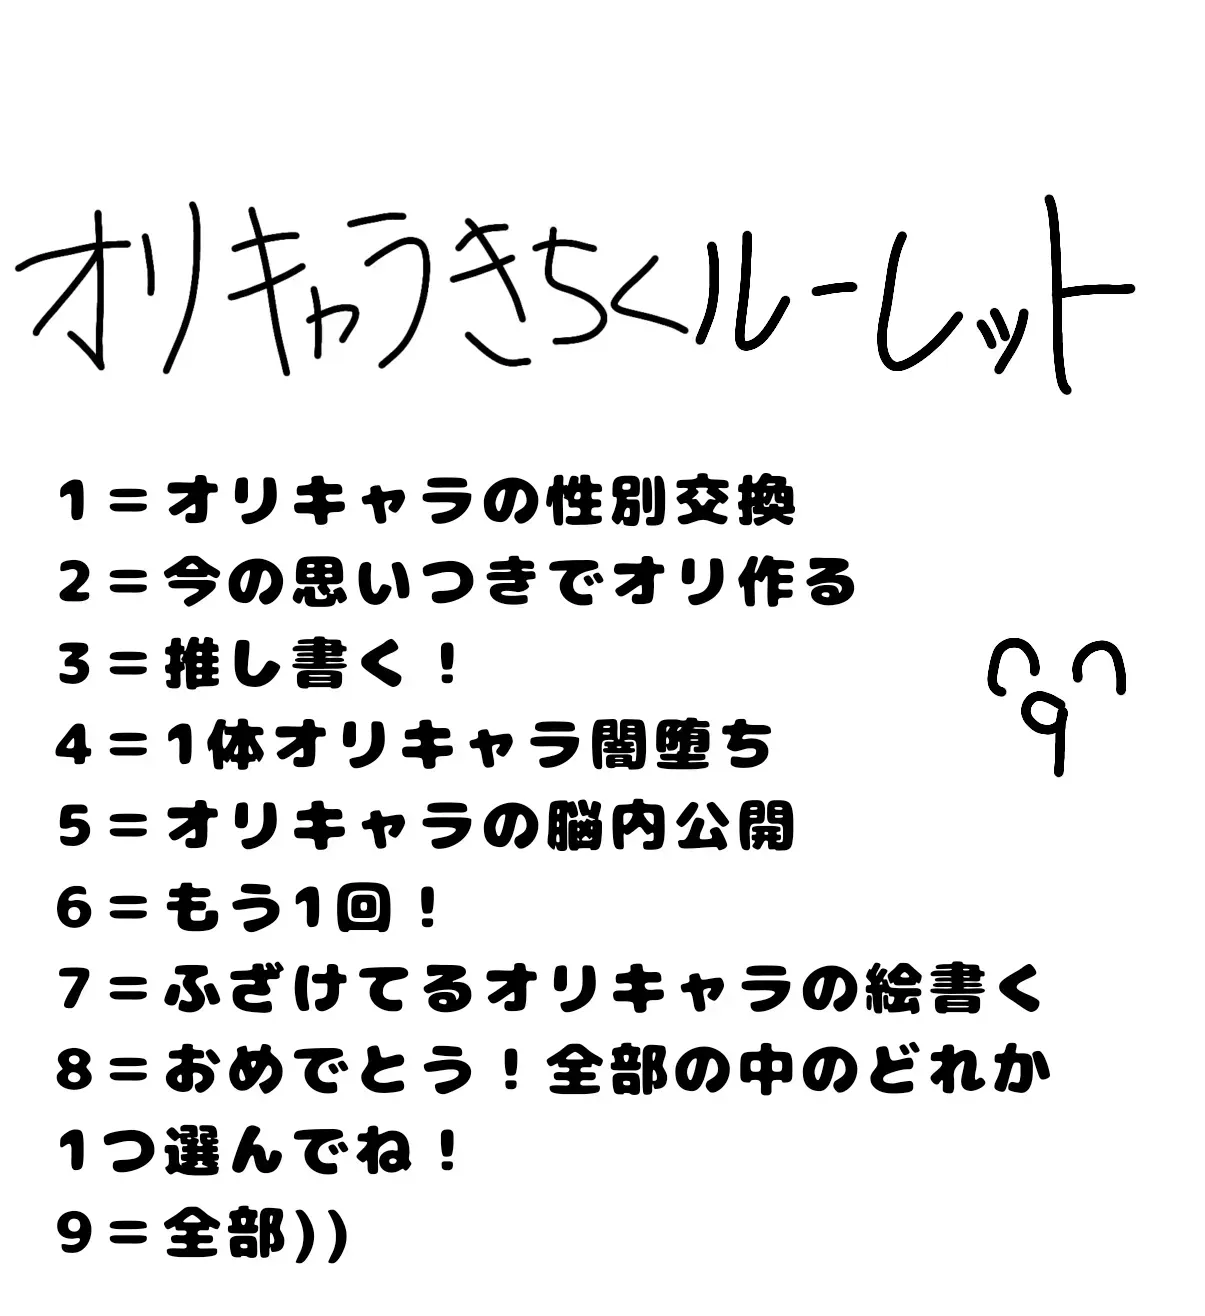 オリキャラきちくルーレット
1＝オリキャラの性別交換
2＝今の思いつきでオリ作る
3＝推し書く！
4＝1体オリキャラ闇堕ち
5＝オリキャラの脳内公開
6＝もう1回！
7＝ふざけてるオリキャラの絵書く
8＝おめでとう！全部の中のどれか
1つ選んでね！
9＝全部))